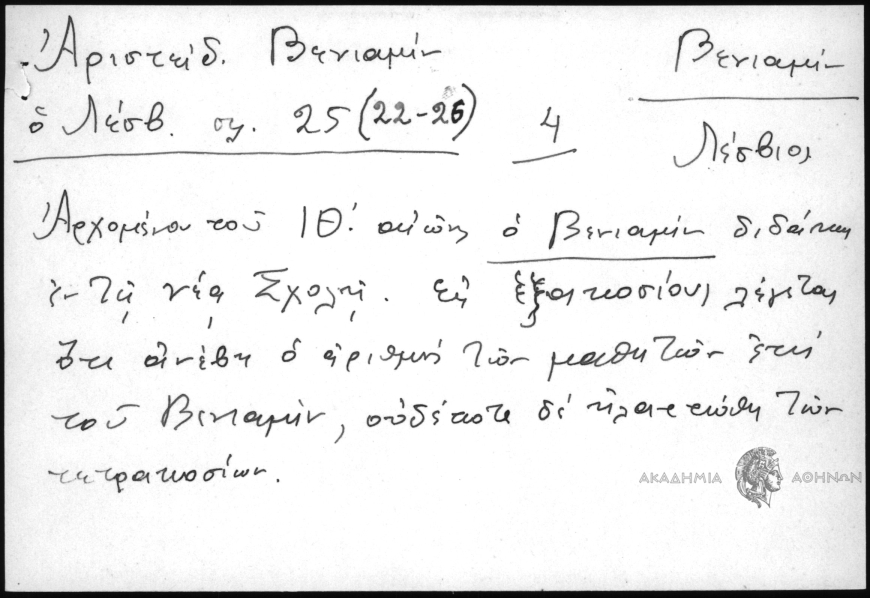 Ἀριστείδ. Βενιαμίν Βενιαμίν
ὁ Λέσβ. σελ. 25 (22-26) 4 Λέσβιος
Ἀρχομένου τοῦ ΙΘ΄. αἰῶνος ὁ Βενιαμίν διδάσκει
ἐν τῇ νέᾳ Σχολῇ. Εἰς ἑξακοσίους λέγεται
ὅτι ἀνέβη ὁ ἀριθμός τῶν μαθητῶν ἐπί
τοῦ Βενιαμίν, οὐδέποτε δέ ἠλαττώθη τῶν
τετρακοσίων.
ΑΚΑΔΗΜΙΑ ΑΘΗΝΩΝ